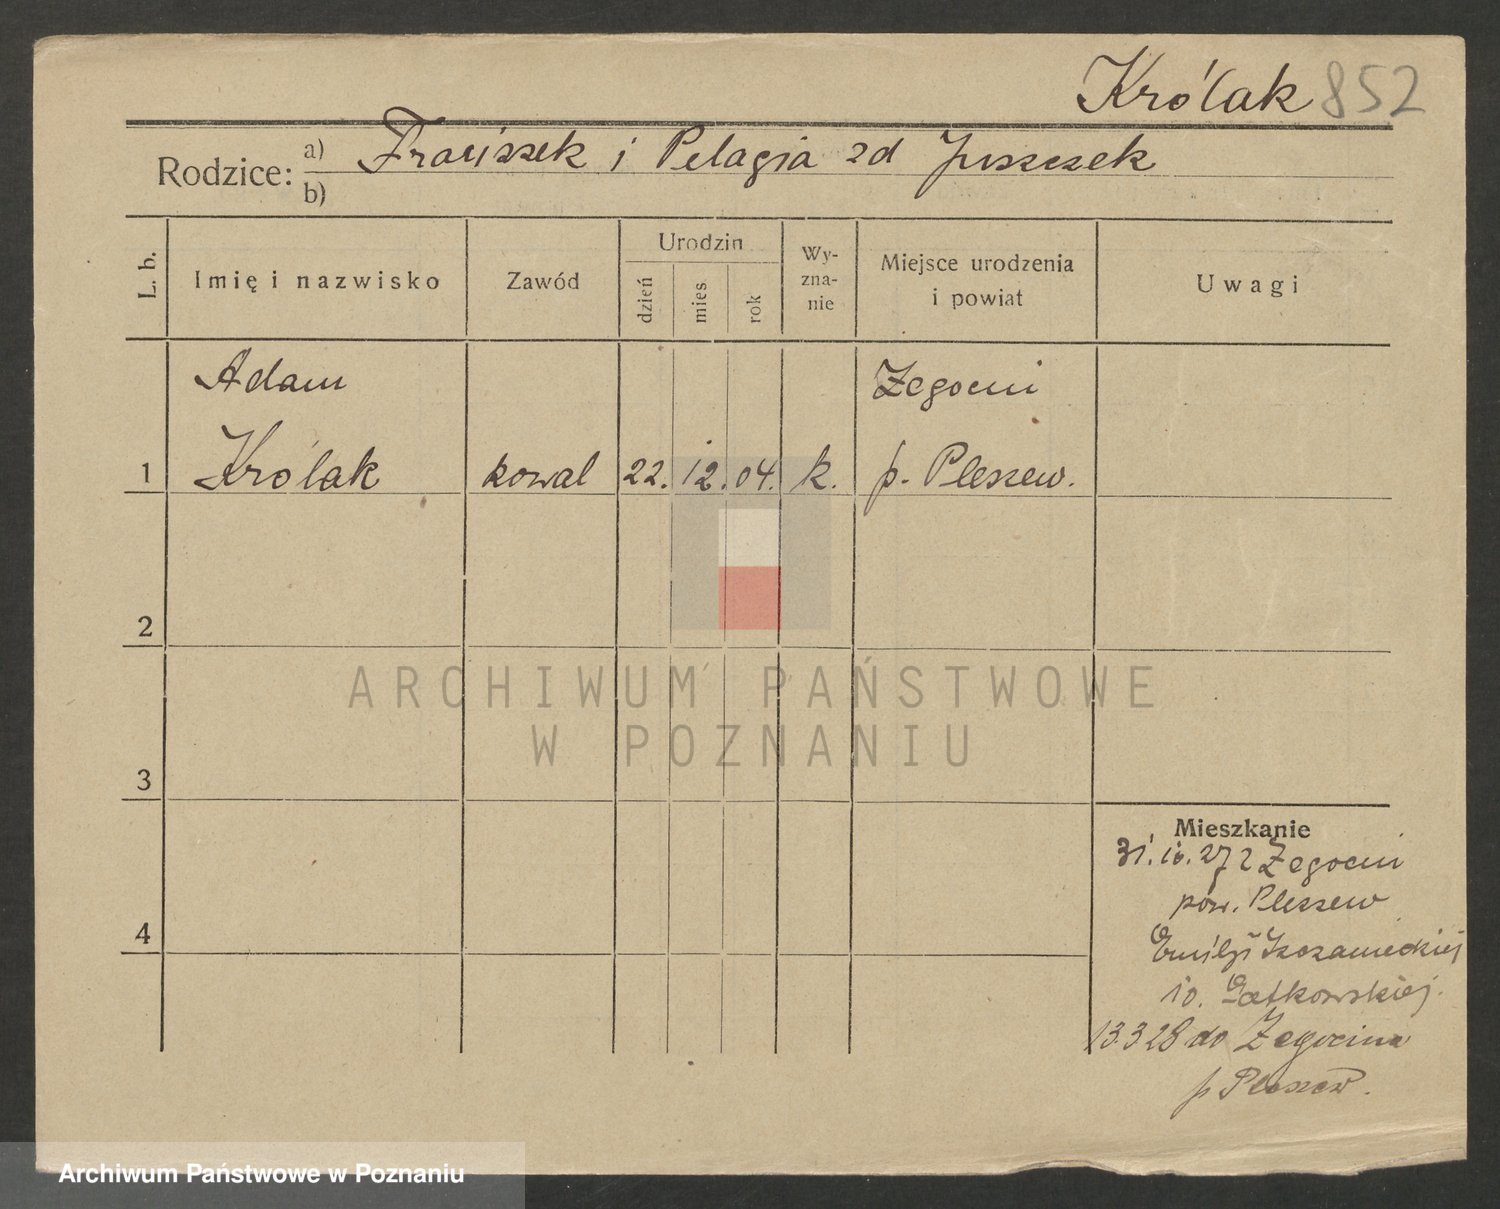 Królak 852
Rodzice: a) Fraciszek i Pelagia zd Juszczek
b)
L. b.
Imię i nazwisko
Zawód
Urodzin
dzień
mies
rok
Wy-
zna-
nie
Miejsce urodzenia
i powiat
Uwagi
Adam
Żegocin
1 Królak kowal 22. 12. 04. k. p. Pleszew.
2
ARCHIWUM PAŃSTWOWE
W POZNANIU
3
Mieszkanie
31. 10. 27 z Żegocin
pow. Pleszew
4
Emilji
10.
13.3 28 do Żegocina
p Pleszew.
Archiwum Państwowe w Poznaniu